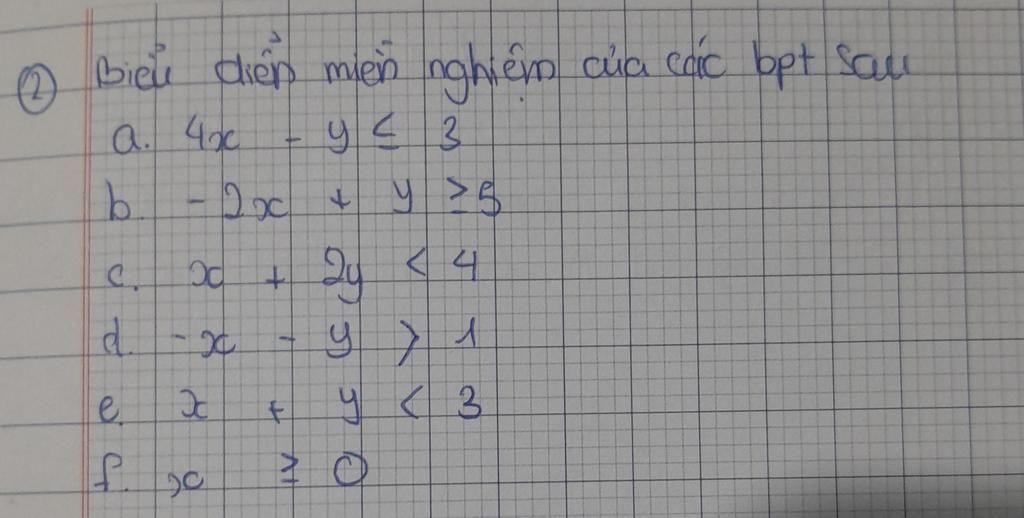 ② Biểu diễn miền nghiệm của các bpt sau
a. 4x - y ≤ 3
b. - 2x + y ≥ 5
c. x + 2y < 4
d. - x - y > 1
e. x + y < 3
f. x ≥ 0